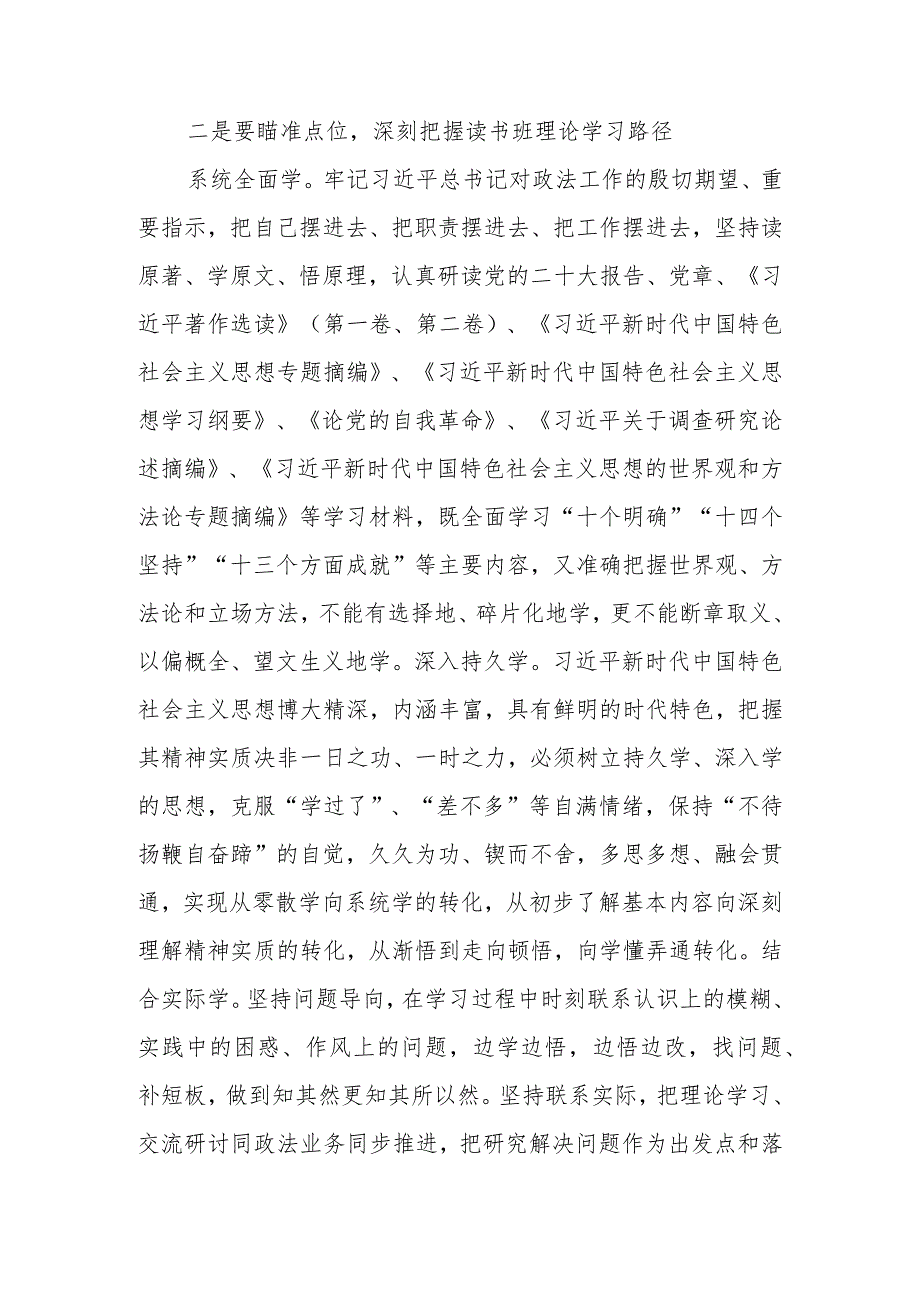 二是要瞄准点位，深刻把握读书班理论学习路径
系统全面学。牢记习近平总书记对政法工作的殷切期望、重
要指示，把自己摆进去、把职责摆进去、把工作摆进去，坚持读
原著、学原文、悟原理，认真研读党的二十大报告、党章、《习
近平著作选读》（第一卷、第二卷）、《习近平新时代中国特色
社会主义思想专题摘编》、《习近平新时代中国特色社会主义思
想学习纲要》、《论党的自我革命》、《习近平关于调查研究论
述摘编》、《习近平新时代中国特色社会主义思想的世界观和方
法论专题摘编》等学习材料，既全面学习“十个明确”“十四个
坚持”“十三个方面成就”等主要内容，又准确把握世界观、方
法论和立场方法，不能有选择地、碎片化地学，更不能断章取义、
以偏概全、望文生义地学。深入持久学。习近平新时代中国特色
社会主义思想博大精深，内涵丰富，具有鲜明的时代特色，把握
其精神实质决非一日之功、一时之力，必须树立持久学、深入学
的思想，克服“学过了”、“差不多”等自满情绪，保持“不待
扬鞭自奋蹄”的自觉，久久为功、锲而不舍，多思多想、融会贯
通，实现从零散学向系统学的转化，从初步了解基本内容向深刻
理解精神实质的转化，从渐悟到走向顿悟，向学懂弄通转化。结
合实际学。坚持问题导向，在学习过程中时刻联系认识上的模糊、
实践中的困惑、作风上的问题，边学边悟，边悟边改，找问题、
补短板，做到知其然更知其所以然。坚持联系实际，把理论学习、
交流研讨同政法业务同步推进，把研究解决问题作为出发点和落